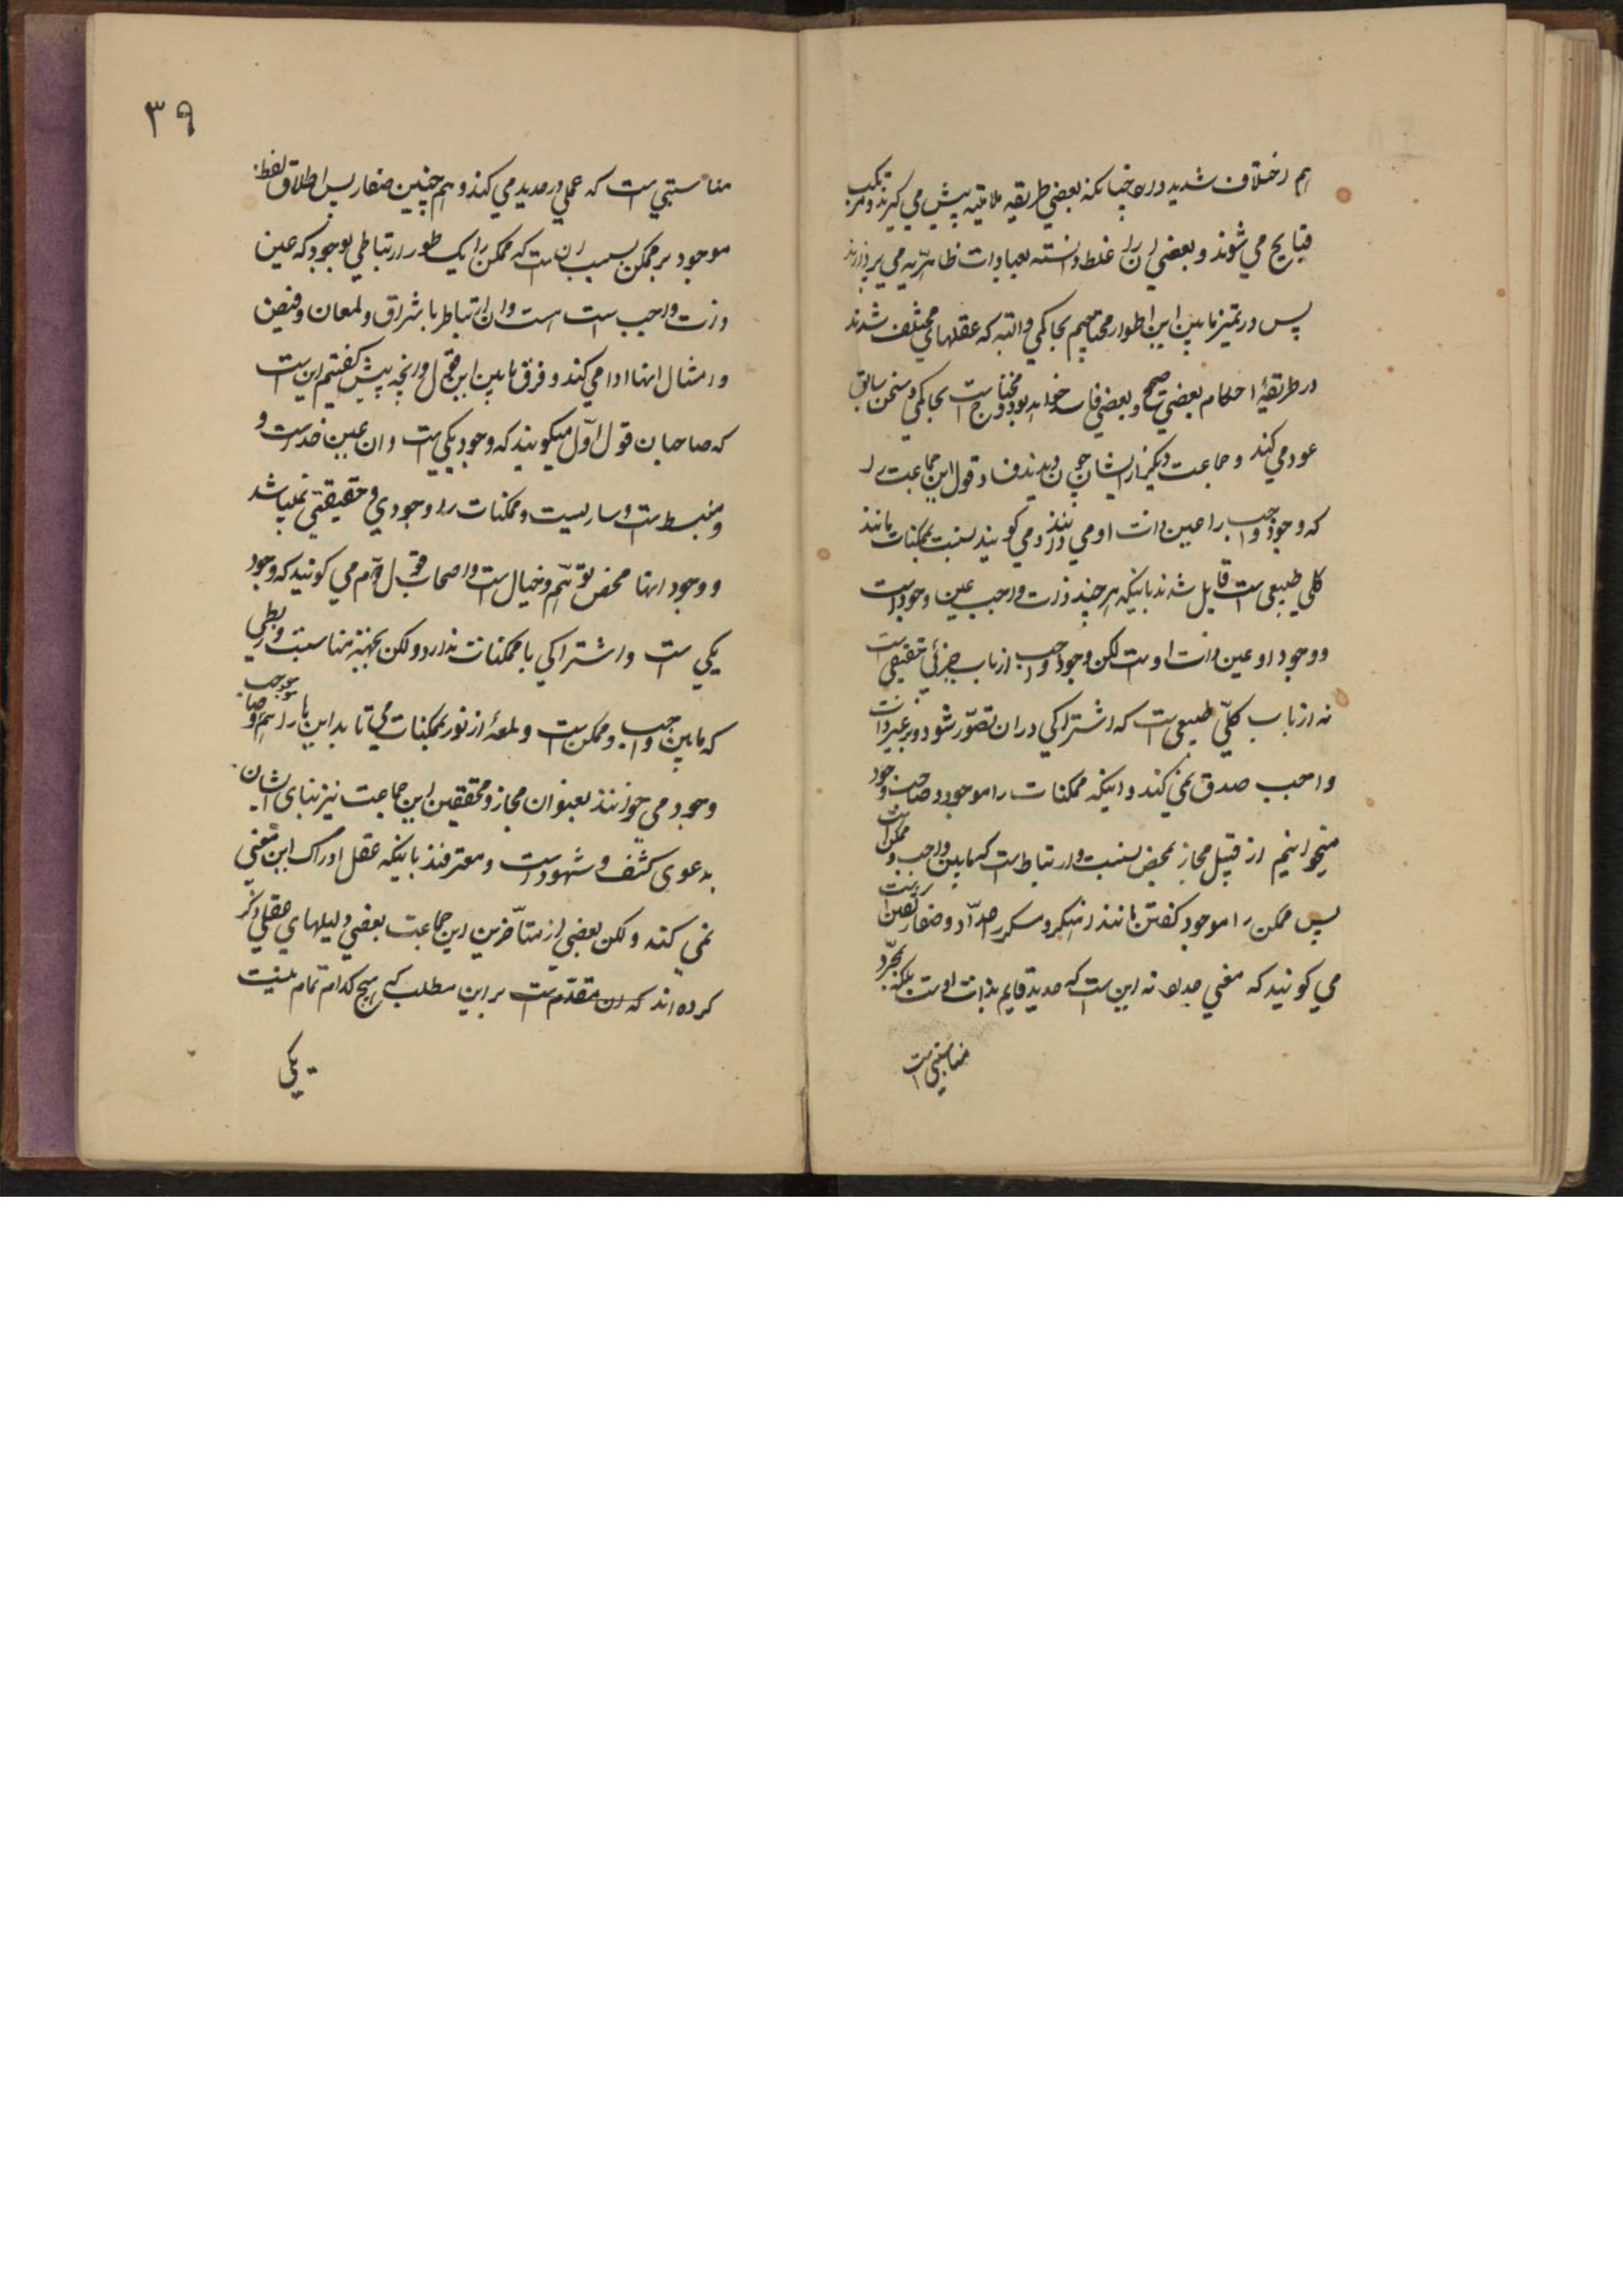 هم اختلاف شدید دارد چنانکه بعضی طریقه ملامتیه پیش می کیرند و مرتکب
قبایح می شوند و بعضی ان را غلط دانسته بعبادات ظاهریه می پردازند
پس در تمیز مابین این اطوار محتاجیم بحاکمی و البته که عقلهای مختلف شدند
در طریقهٔ احکام بعضی صحیح و بعضی فاسد خواهد بود و محتاج است بحاکمی و سخن سابق
عود می کند و جماعت دیکر از ایشان چون دیدند فساد قول این جماعت را
که وجود واجب را عین ذات او می دانند و می کویند نسبت بممکنات مانند
کلی طبیعی است قایل شدند باینکه هر چند ذات واجب عین وجود است
و وجود او عین ذات اوست لکن وجود واجب از باب جزئی حقیقی است
نه از باب کلّی طبیعی است که اشتراکی در ان تصوّر شود و بر غیر ذات
واجب صدق نمی کند و اینکه ممکنات را موجود و صاحب وجود
میخوانیم از قبیل مجاز بمحض نسبت و ارتباط است که مابین واجب و ممکن است
پس ممکن را موجود کفتن مانند اینکر و سکر حدّاد و صفار است یعنی
می کویند که معنی حداد نه این است که حدید قایم بذات اوست بلکه بمجرّد
مناسبتی است
۳۹
مناسبتی است که عملی در حدید می کند و هم چنین صفار پس اطلاق لفظ
موجود بر ممکن بسبب ان است که ممکن را یک طور ارتباطی بوجود که عین
ذات واجب است هست و ان ارتباط باشراق و لمعان و فیض
و امثال انها ادا می کنند و فرق مابین این قول و انچه پیش کفتیم این است
که صاحبان قول اوّل میکویند که وجود یکی است و ان عین خداست و
منبسط است و ساریست و ممکنات را وجودی و حقیقتی نمیباشد
و وجود انها محض توهّم و خیال است و اصحاب قول دوّم می کویند که وجود
یکی است و اشتراکی با ممکنات ندارد و لکن بجهة مناسبت و ربطی
که مابین واجب و ممکن است و لمعهٔ از نور بممکنات می تابد این ها را هم موجود و صاحب
وجود می خوانند بعنوان مجاز و محققین این جماعت نیز بنای ایشان
بدعوی کشف و شهود است و معترفند باینکه عقل ادراک این معنی
نمی کند و لکن بعضی از متأخّرین این جماعت بعضی دلیلهای عقلی ذکر
کرده اند که ان مقدّم است بر این مطلب که هیچ کدام تمام نیست
یکی